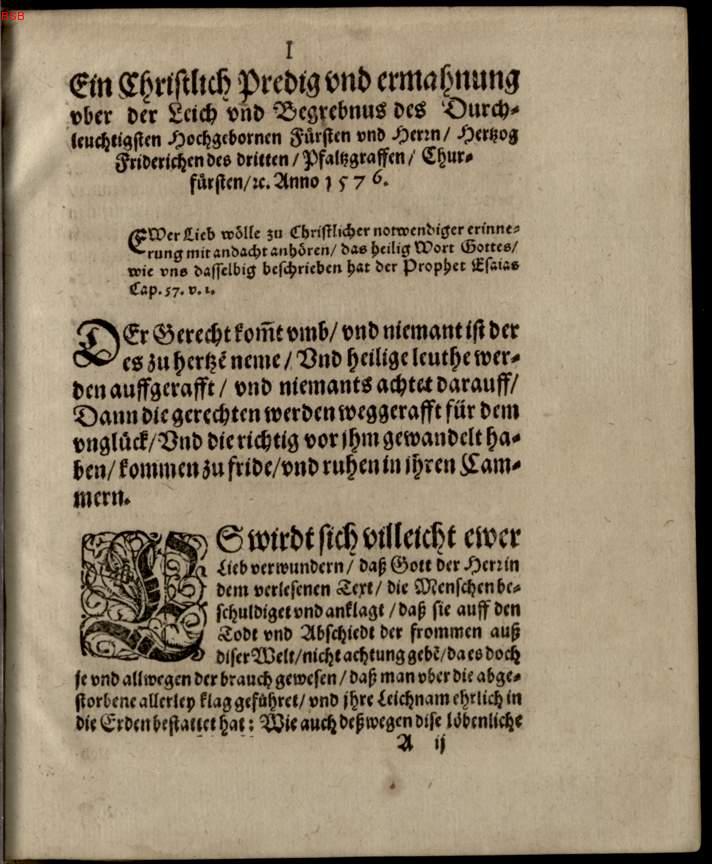 BSB
I
Ein Christlich Predig vnd ermahnung
vber der Leich vnd Begrebnus des Durch-
leuchtigsten Hochgebornen Fürsten vnd Herrn/ Hertzog
Friderichen des dritten/ Pfaltzgraffen/ Chur-
fürsten/ꝛc. Anno 1576.
EWer Lieb wölle zu Christlicher notwendiger erinne-
rung mit andacht anhören/ das heilig Wort Gottes/
wie vns dasselbig beschrieben hat der Prophet Esaias
Cap. 57. v. 1.
DEr Gerecht kom̄t vmb/ vnd niemant ist der
es zu hertzē neme/ Vnd heilige leuthe wer-
den auffgerafft/ vnd niemants achtet darauff/
Dann die gerechten werden weggerafft für dem
vnglück/ Vnd die richtig vor jhm gewandelt ha-
ben/ kommen zu fride/ vnd ruhen in jhren Cam-
mern.
ES wirdt sich villeicht ewer
Lieb verwundern/ daß Gott der Herr in
dem verlesenen Text/ die Menschen be-
schuldiget vnd anklagt/ daß sie auff den
Todt vnd Abschiedt der frommen auß
diser Welt/ nicht achtung gebē/ da es doch
je vnd allwegen der brauch gewesen/ daß man vber die abge-
storbene allerley klag geführet/ vnd jhre Leichnam ehrlich in
die Erden bestattet hat: Wie auch deßwegen dise löbenliche
A ij